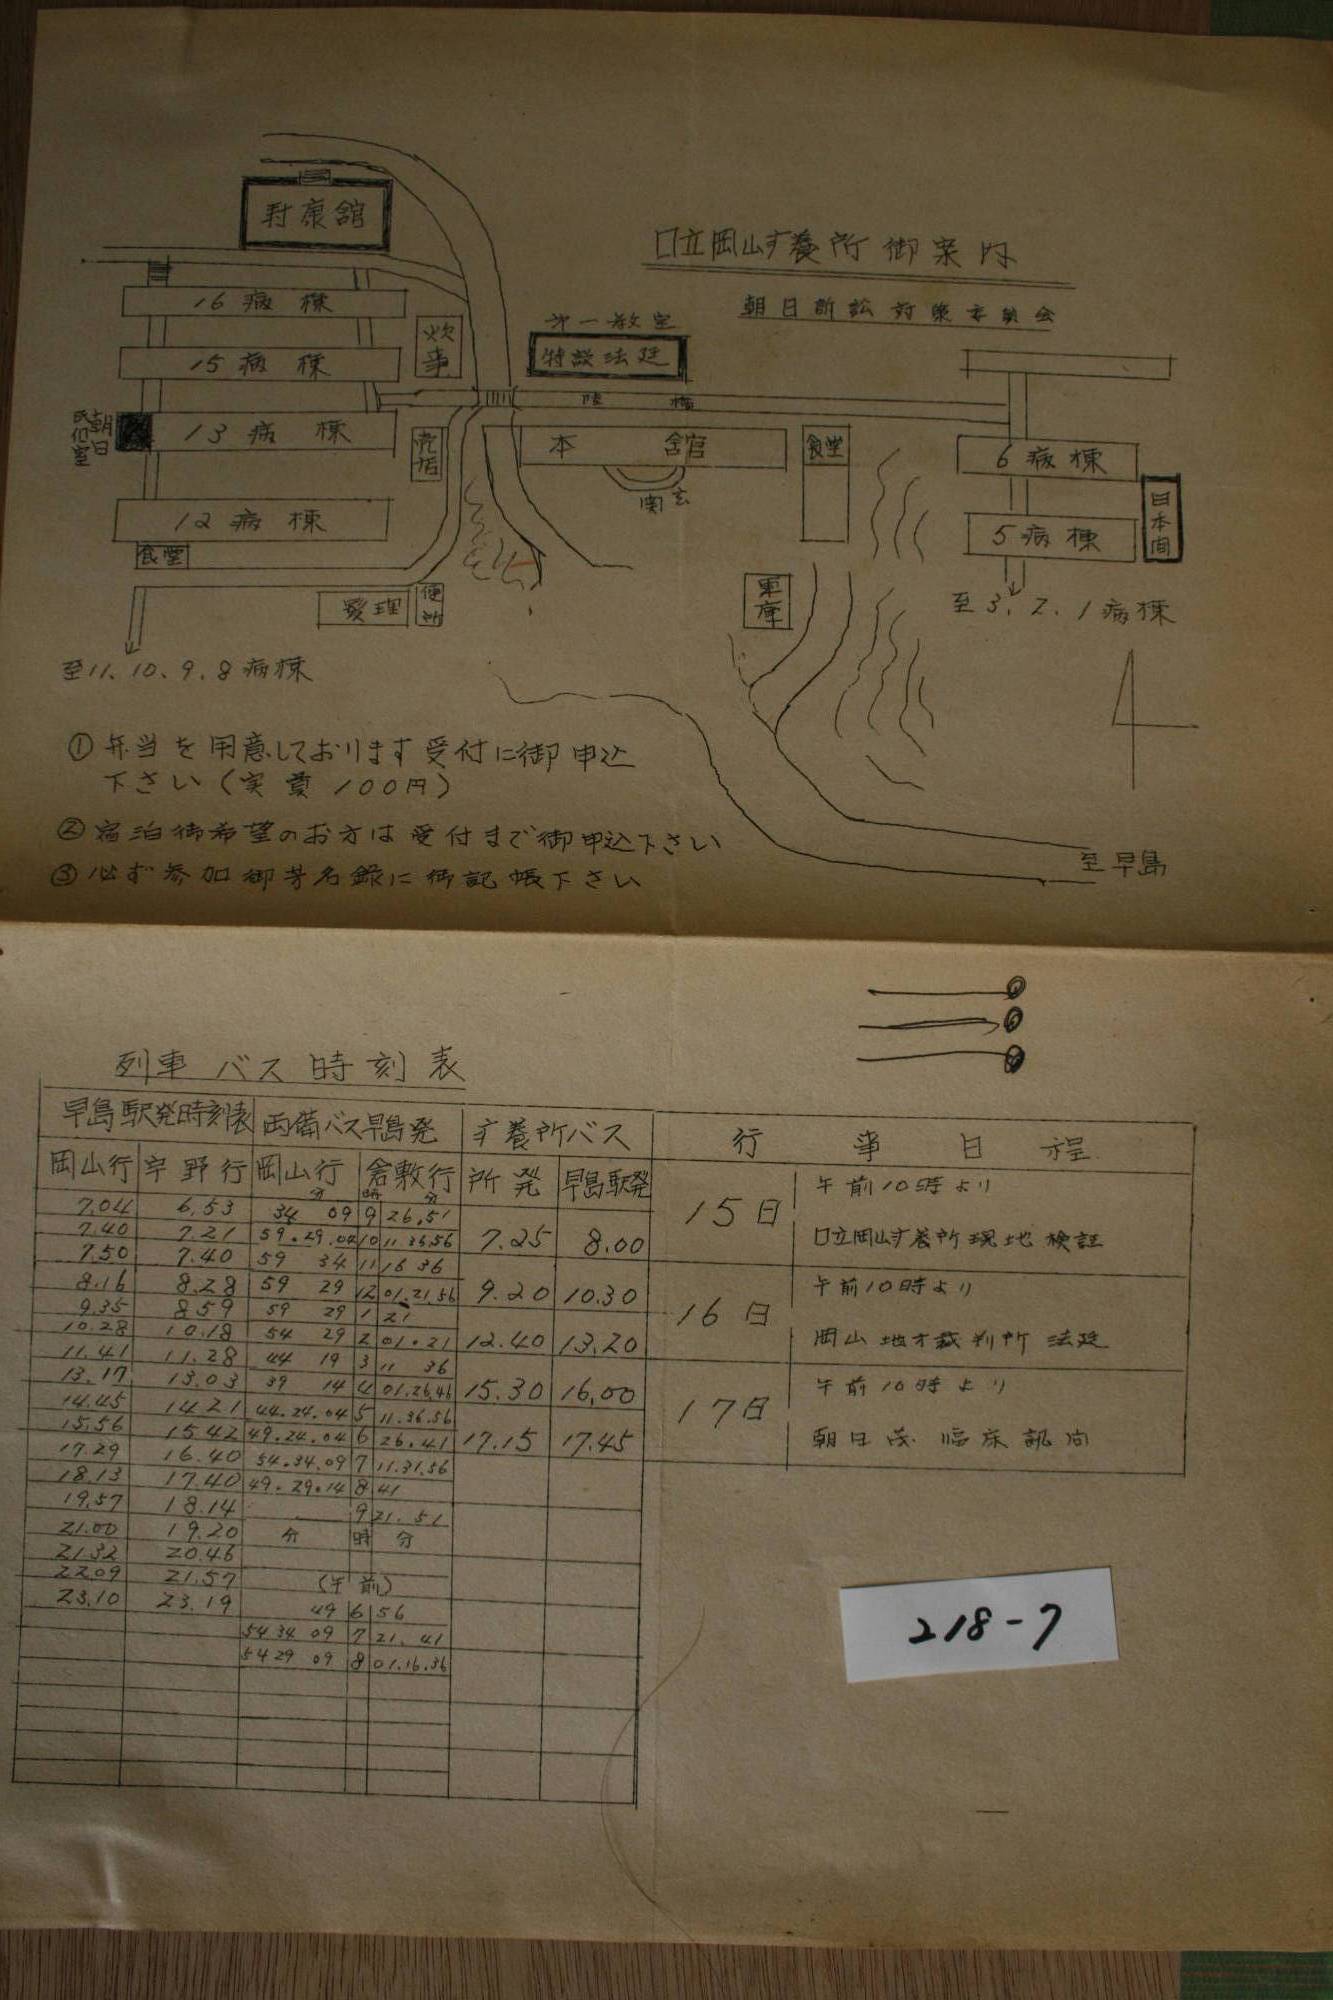 口立岡山す養所御案内
朝日訴訟対策委員会
封康舘
16病棟
15病棟
13病棟
12病棟
朝日
氏旧室
炊事
売店
食堂
整理
便所
至11、10、9、8病棟
第一教室
特設法廷
陸橋
本舘官
玄関
食堂
車庫
6病棟
5病棟
日本間
至3、2、1病棟
至早島
①弁当を用意しております受付に御申込
下さい(実費100円)
②宿泊御希望のお方は受付まで御申込下さい
③必ず参加御芳名録に御記帳下さい
列車バス時刻表
早島駅発時刻表 両備バス早島発 す養所バス 行事日程
岡山行 宇野行 岡山行 倉敷行 所発 早島駅発
分 時 分
7.04 6.53 34 09 9 26.51
7.40 7.21 59.29.04 10 11 36.56 7.25 8.00
7.50 7.40 59 34 11 16 36
8.16 8.28 59 29 12 01.21.56 9.20 10.30
9.35 8.59 59 29 1 21
10.28 10.18 54 29 2 01.21 12.40 13.20
11.41 11.28 44 19 3 11 36
13.17 13.03 39 14 4 01.26.46 15.30 16.00
14.45 14.21 44.24.04 5 11.36.56
15.56 15.42 49.24.04 6 26.41 17.15 17.45
17.29 16.40 54.34.09 7 11.31.56
18.13 17.40 49.29.14 8 41
19.57 18.14 9 21.51
21.00 19.20 分 時 分
21.32 20.46
22.09 21.57 (午前)
23.10 23.19 49 6 56
54 34 09 7 21.41
54 29 09 8 01.16.36
15日 午前10時より
口立岡山す養所現地検証
16日 午前10時より
岡山地方裁判所法廷
17日 午前10時より
朝日茂臨床訊問
218-7